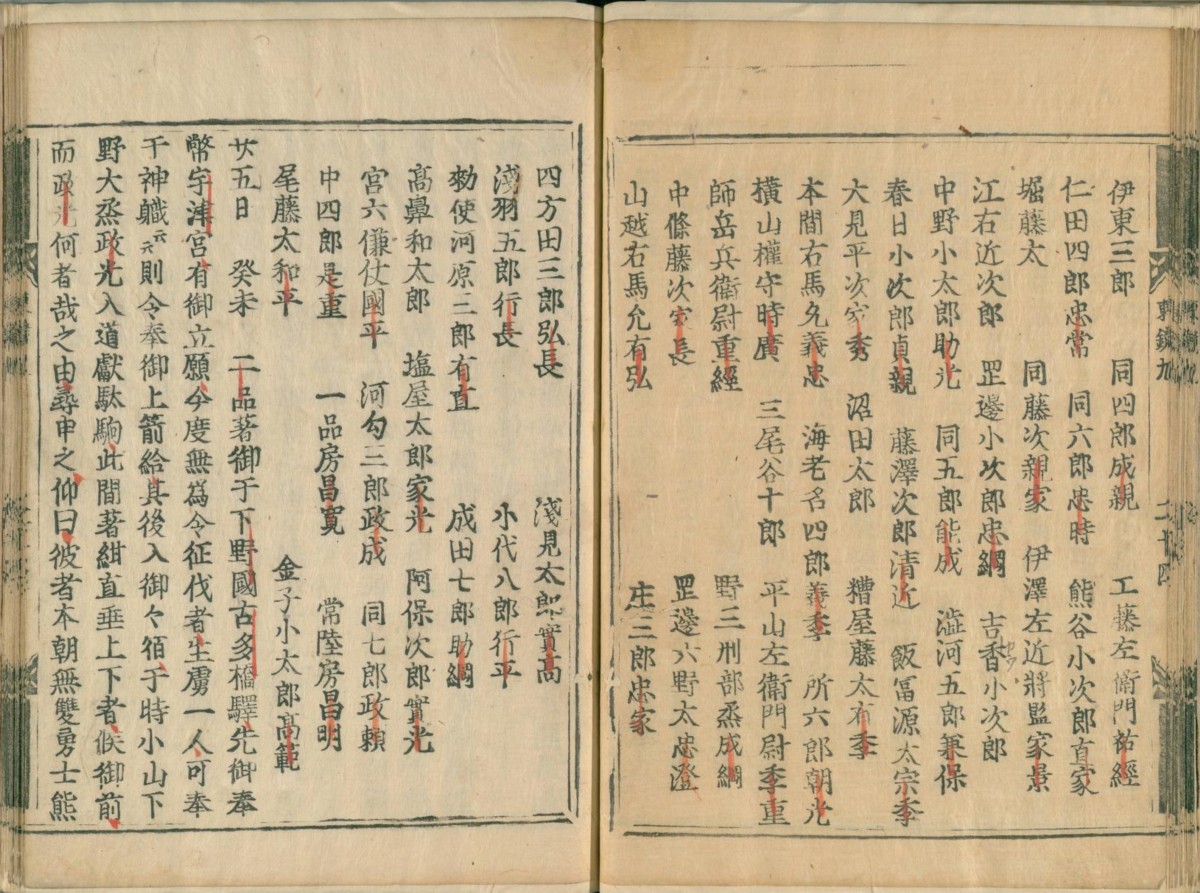 伊東三郎 同四郎成親 工藤左衛門祐經
仁田四郎忠常 同六郎忠時 熊谷小次郎直家
堀藤太 同藤次親家 伊澤左近將監家景
江右近次郎 罡邊小次郎忠綱 吉香小次郎
中野小太郎助光 同五郎能成 澁河五郎兼保
春日小次郎貞親 藤澤次郎清近 飯冨源太宗季
大見平次家秀 沼田太郎 糟屋藤太有季
本間右馬允義忠 海老名四郎義季 所六郎朝光
横山權守時廣 三尾谷十郎 平山左衛門尉季重
師岳兵衛尉重經 野三刑部烝成綱
中條藤次家長 罡邊六野太忠澄
山越右馬允有弘 庄三郎忠家
四方田三郎弘長 淺見太郎實高
淺羽五郎行長 小代八郎行平
勅使河原三郎有直 成田七郎助綱
髙鼻和太郎 塩屋太郎家光 阿保次郎實光
宮六傔仗國平 河勾三郎政成 同七郎政賴
中四郎是重 一品房昌寛 常陸房昌明
尾藤太和平 金子小太郎髙範
廿五日 癸未 二品著御于下野國古多橋驛先御奉
幣宇津宮有御立願今度無爲令征伐者生虜一人可奉
于神軄云云則令奉御上箭給其後入御々宿于時小山下
野大烝政光入道獻駄駒此間著紺直垂上下者候御前
而政光何者哉之由尋申之仰曰彼者本朝無雙勇士熊